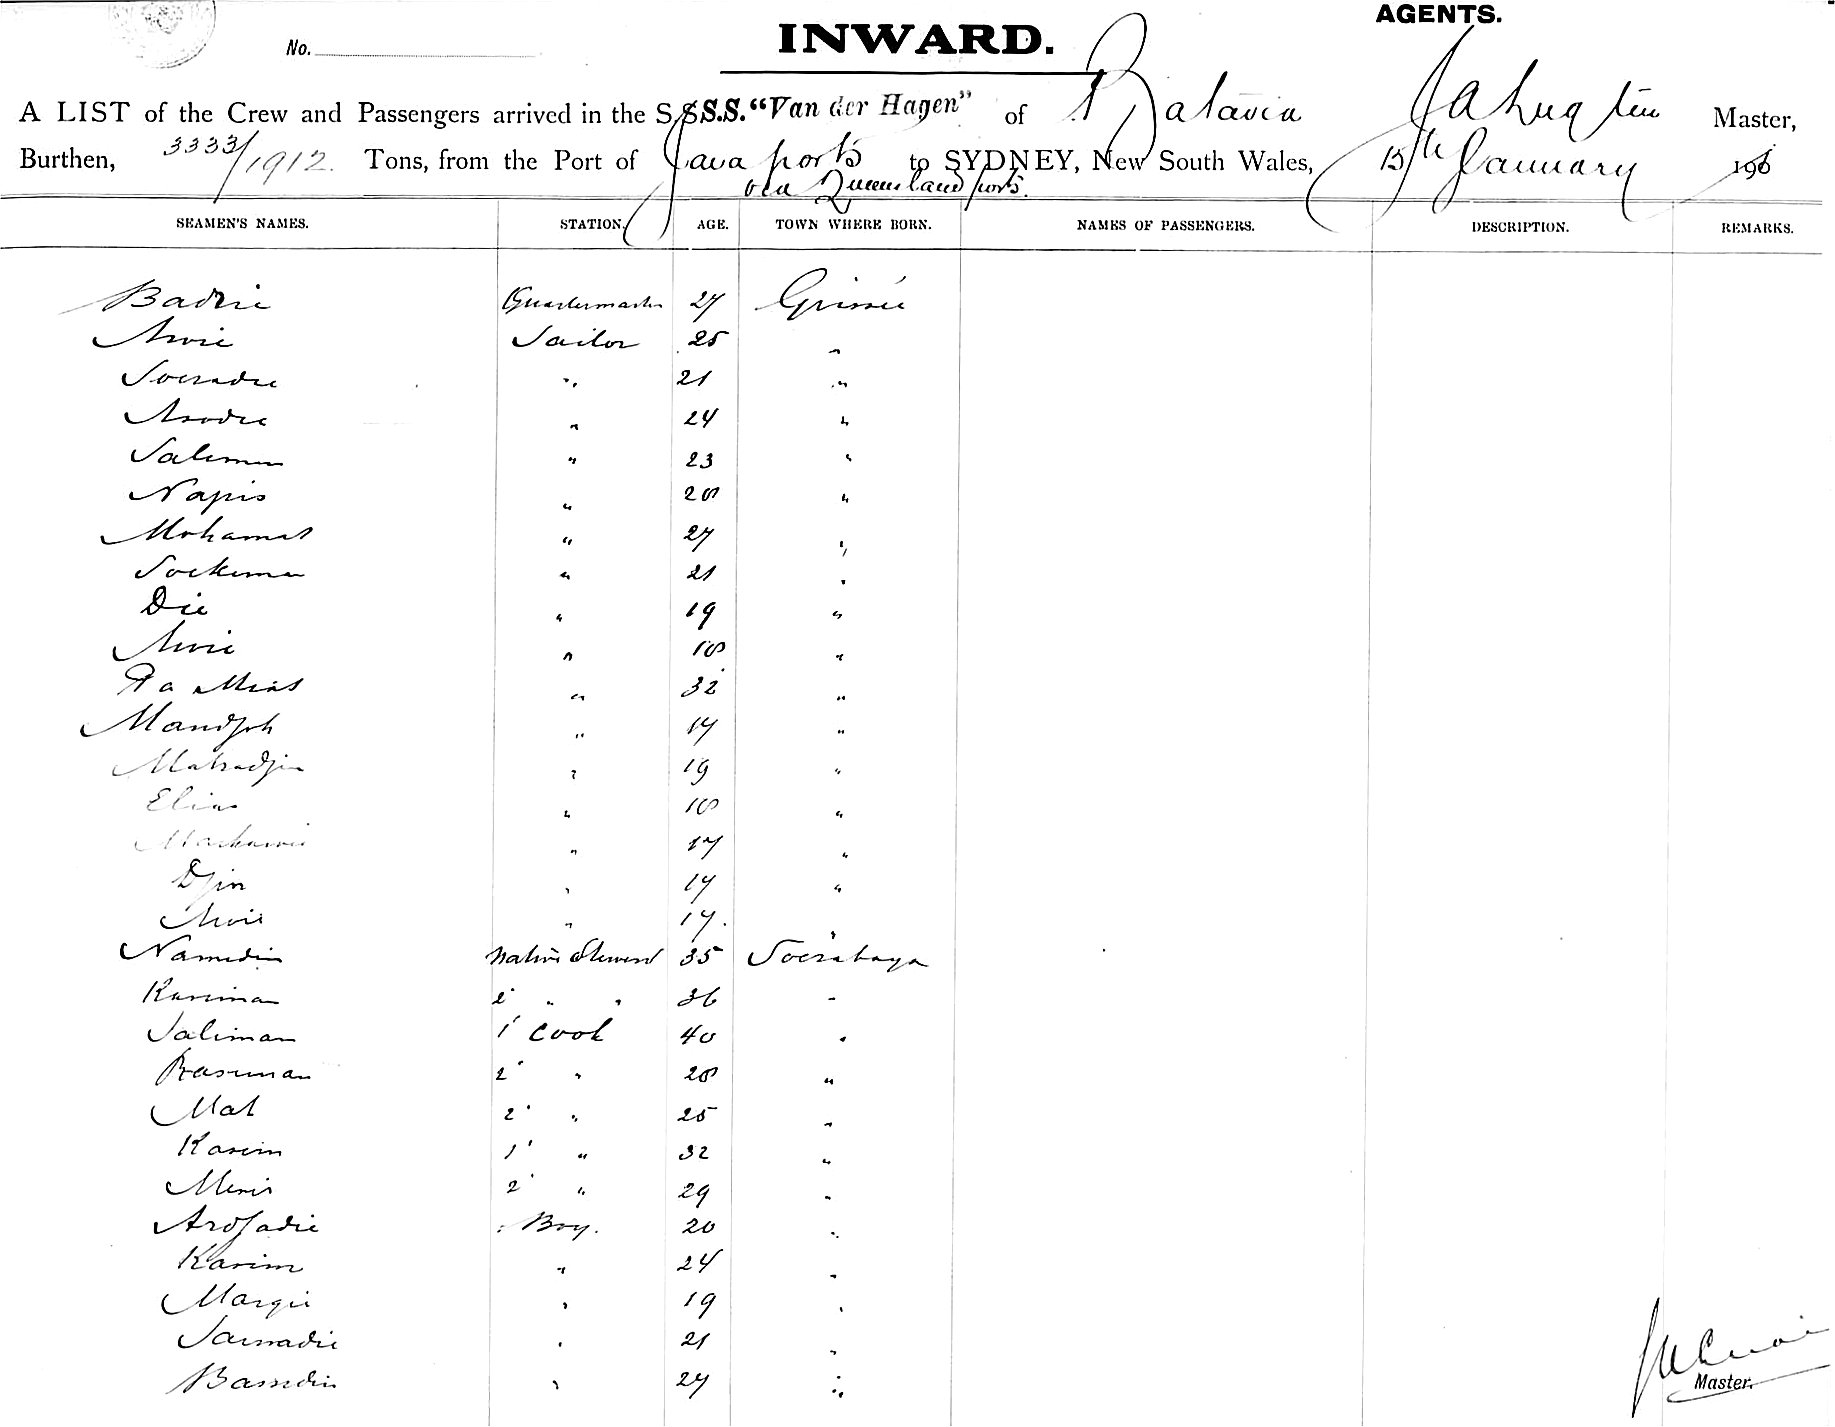 AGENTS.
No.
INWARD.
A LIST of the Crew and Passengers arrived in the S.S. S.S. "Van der Hagen" of Batavia Master,
Burthen, 3333/1912. Tons, from the Port of Java ports to SYDNEY, New South Wales, 15th January 190
via Queensland ports.
SEAMEN'S NAMES. STATION. AGE. TOWN WHERE BORN. NAMES OF PASSENGERS. DESCRIPTION. REMARKS.
Badrie Quartermaster 27 Grissée
Awie Sailor 25 "
Soeradie " 21 "
Asodie " 24 "
Salimun " 23 "
Napis " 28 "
Mohamat " 27 "
Soekiman " 21 "
Die " 19 "
Awie " 18 "
Pa Mias " 32 "
Mandjoh " 17 "
Matradjie " 19 "
Elias " 18 "
" 17 "
Djin " 17 "
Mois " 17. "
Namidin Native Steward 35 Soerabaya
Kariman 2' " " 36 "
Saliman 1' Cook 40 "
Rasiman 2' " 28 "
Mat 2' " 25 "
Kasim 1' " 32 "
Meris 2' " 29 "
Ardjadie Boy. 20 "
Karim " 24 "
Margie " 19 "
Sarmadie " 21 "
Bamidin " 27 "
Master.